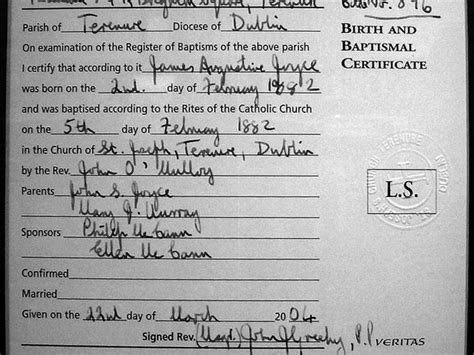 Parish of Terenure Diocese of Dublin
BIRTH AND
BAPTISMAL
CERTIFICATE
On examination of the Register of Baptisms of the above parish
I certify that according to it James Augustine Joyce
was born on the 2nd. day of February 1882
and was baptised according to the Rites of the Catholic Church
on the 5th day of February 1882
in the Church of St. Joseph, Terenure, Dublin
by the Rev. John O' Mulloy
Parents John S. Joyce
Mary J. Murray
L.S.
Sponsors Philip Mc Cann
Ellen Mc Cann
Confirmed
Married
Given on the 22nd day of March 2004
Signed Rev. P.P.
VERITAS